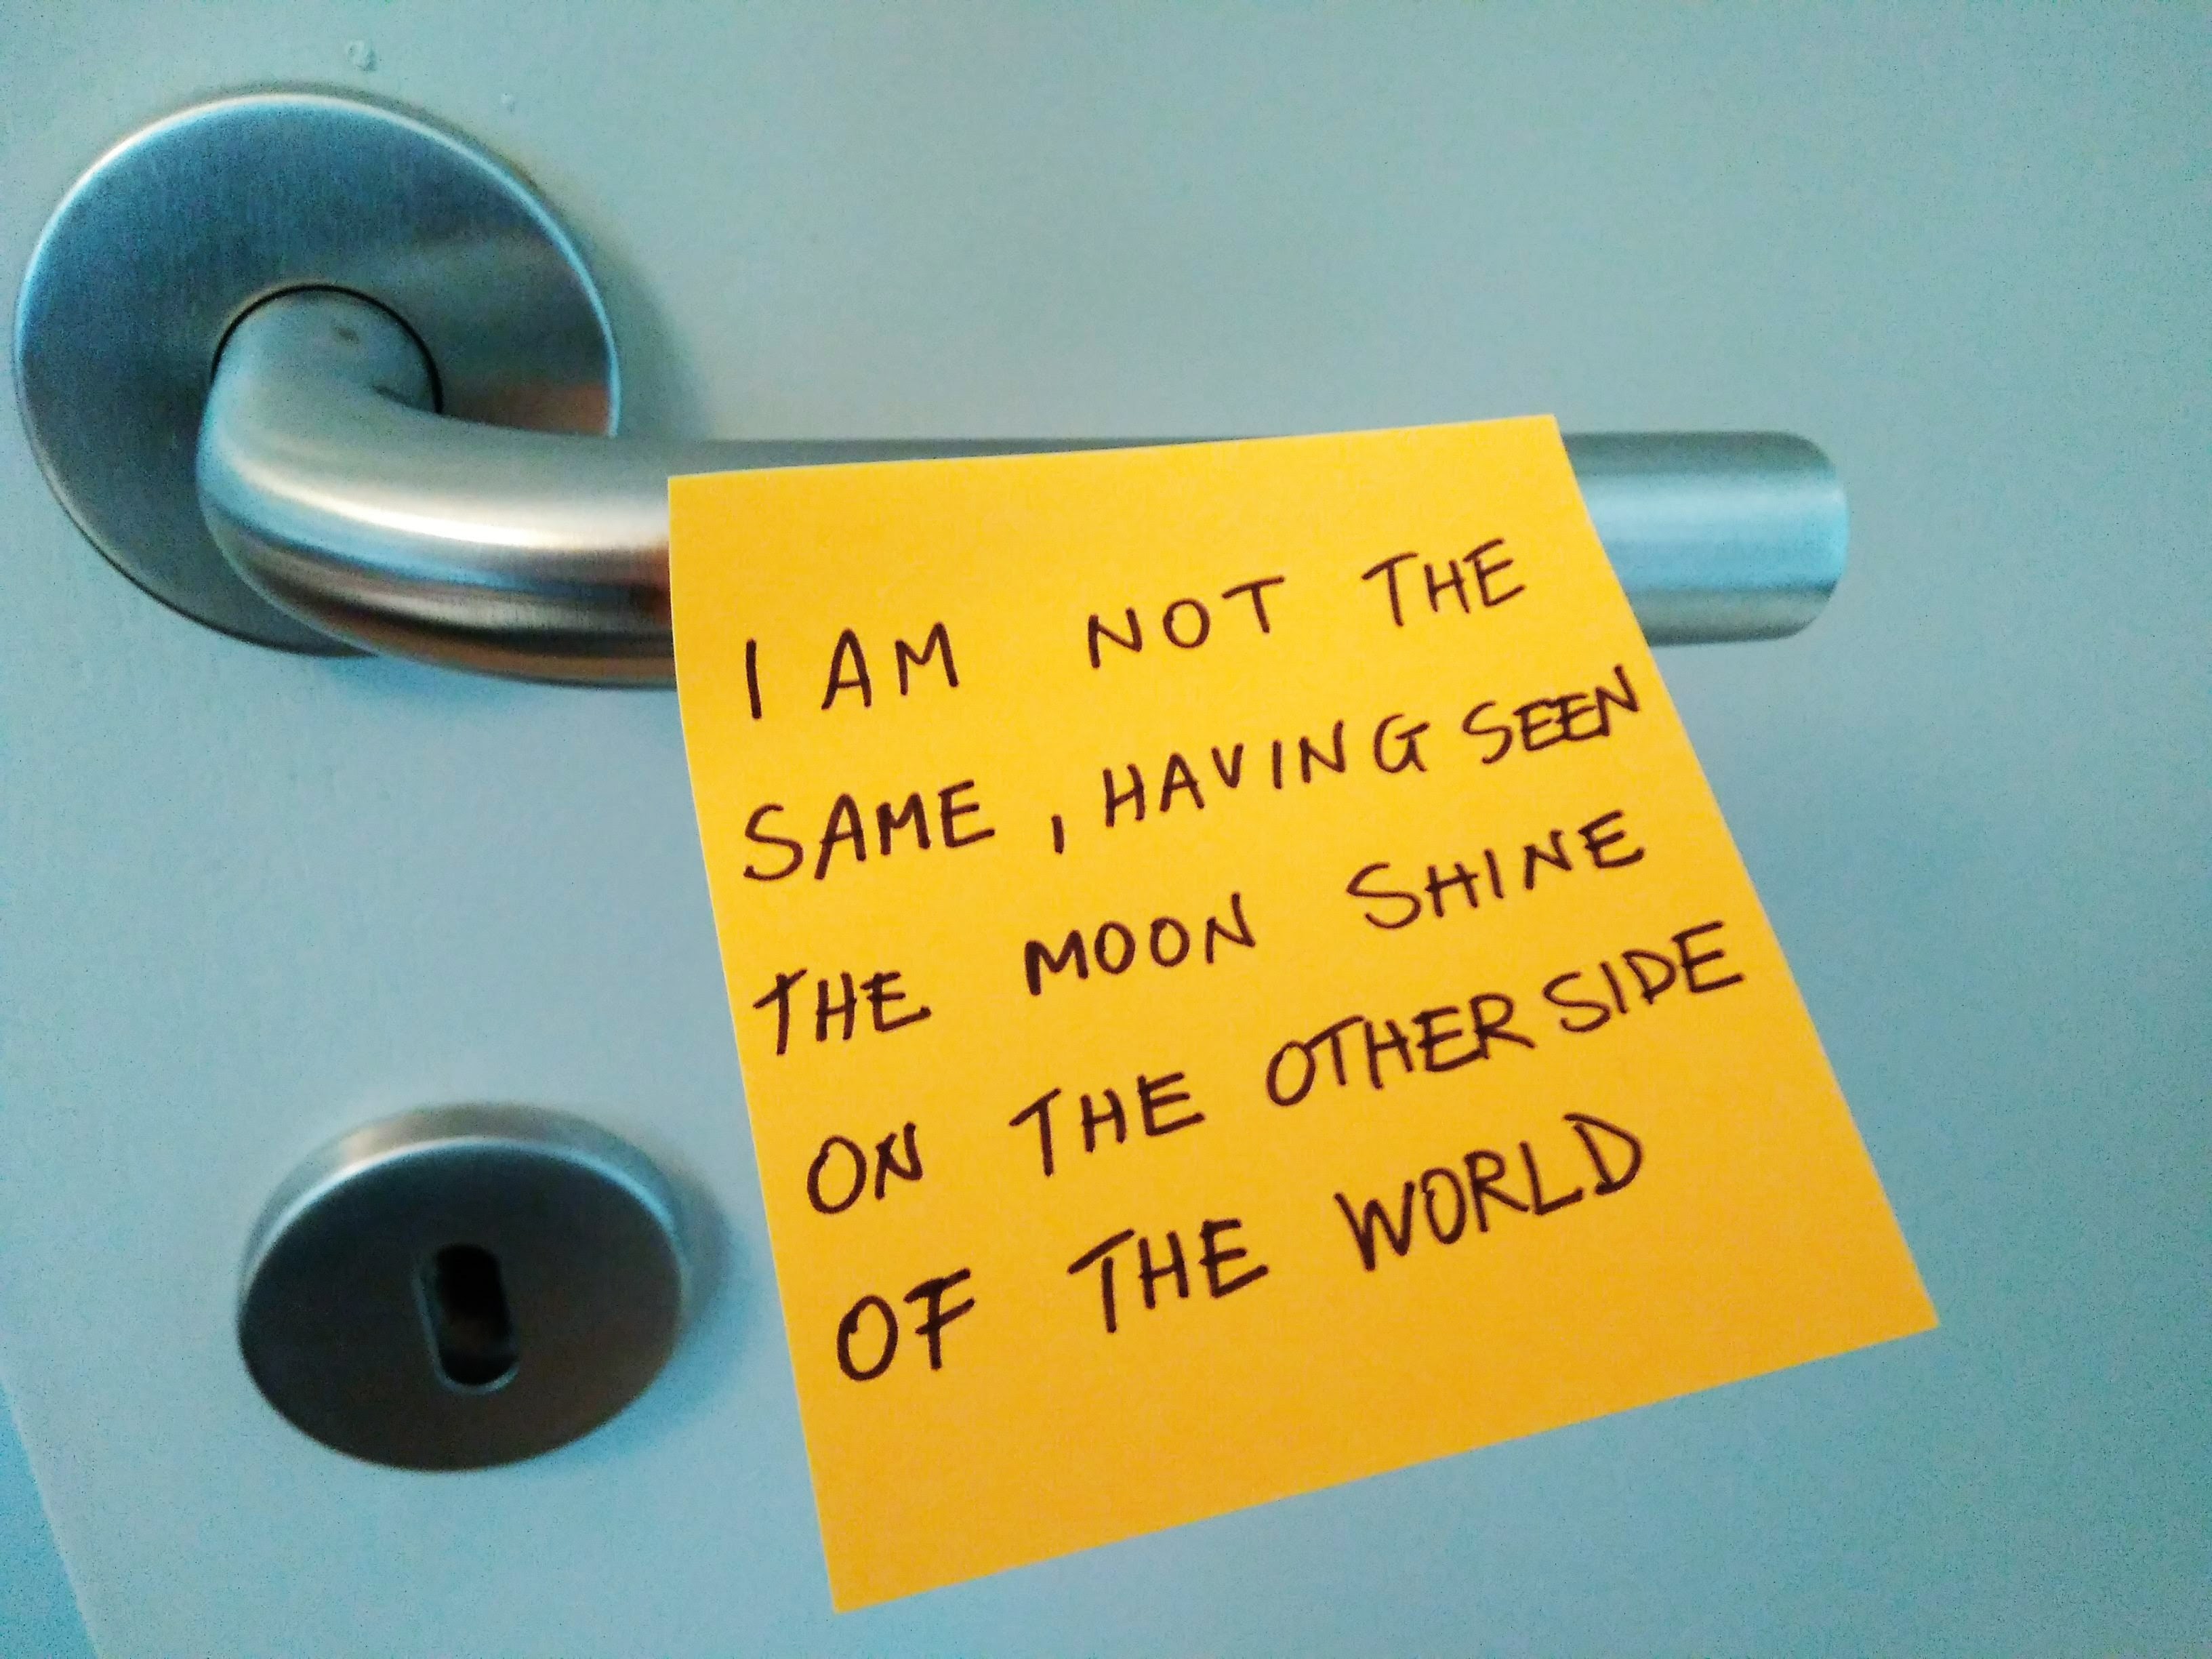 I AM NOT THE
SAME, HAVING SEEN
THE MOON SHINE
ON THE OTHER SIDE
OF THE WORLD